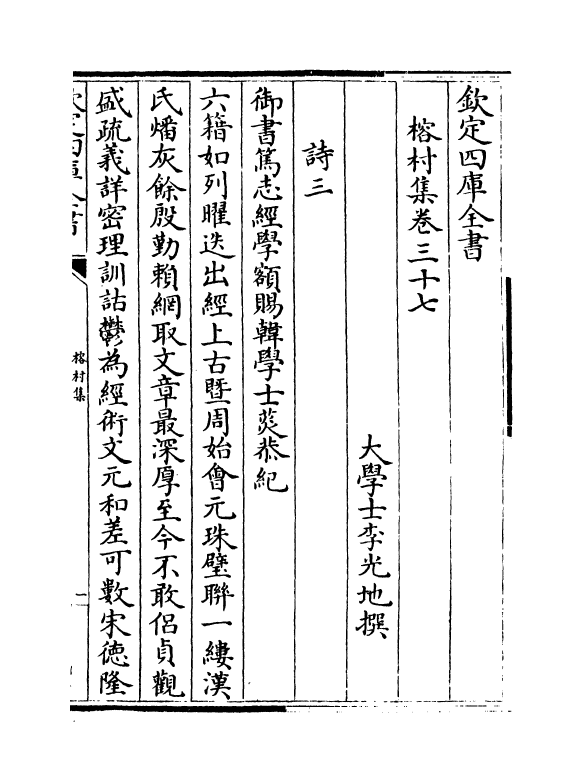 欽定四庫全書
榕村集卷三十七
大學士李光地撰
詩三
御書篤志經學額賜韓學士菼恭紀
六籍如列曜迭出經上古暨周始會元珠璧聯一縷漢
氏燔灰餘殷勤賴網取文章最深厚至今不敢侶貞觀
盛疏義詳密理訓詁鬱為經術文元和差可數宋德隆
榕村集
一